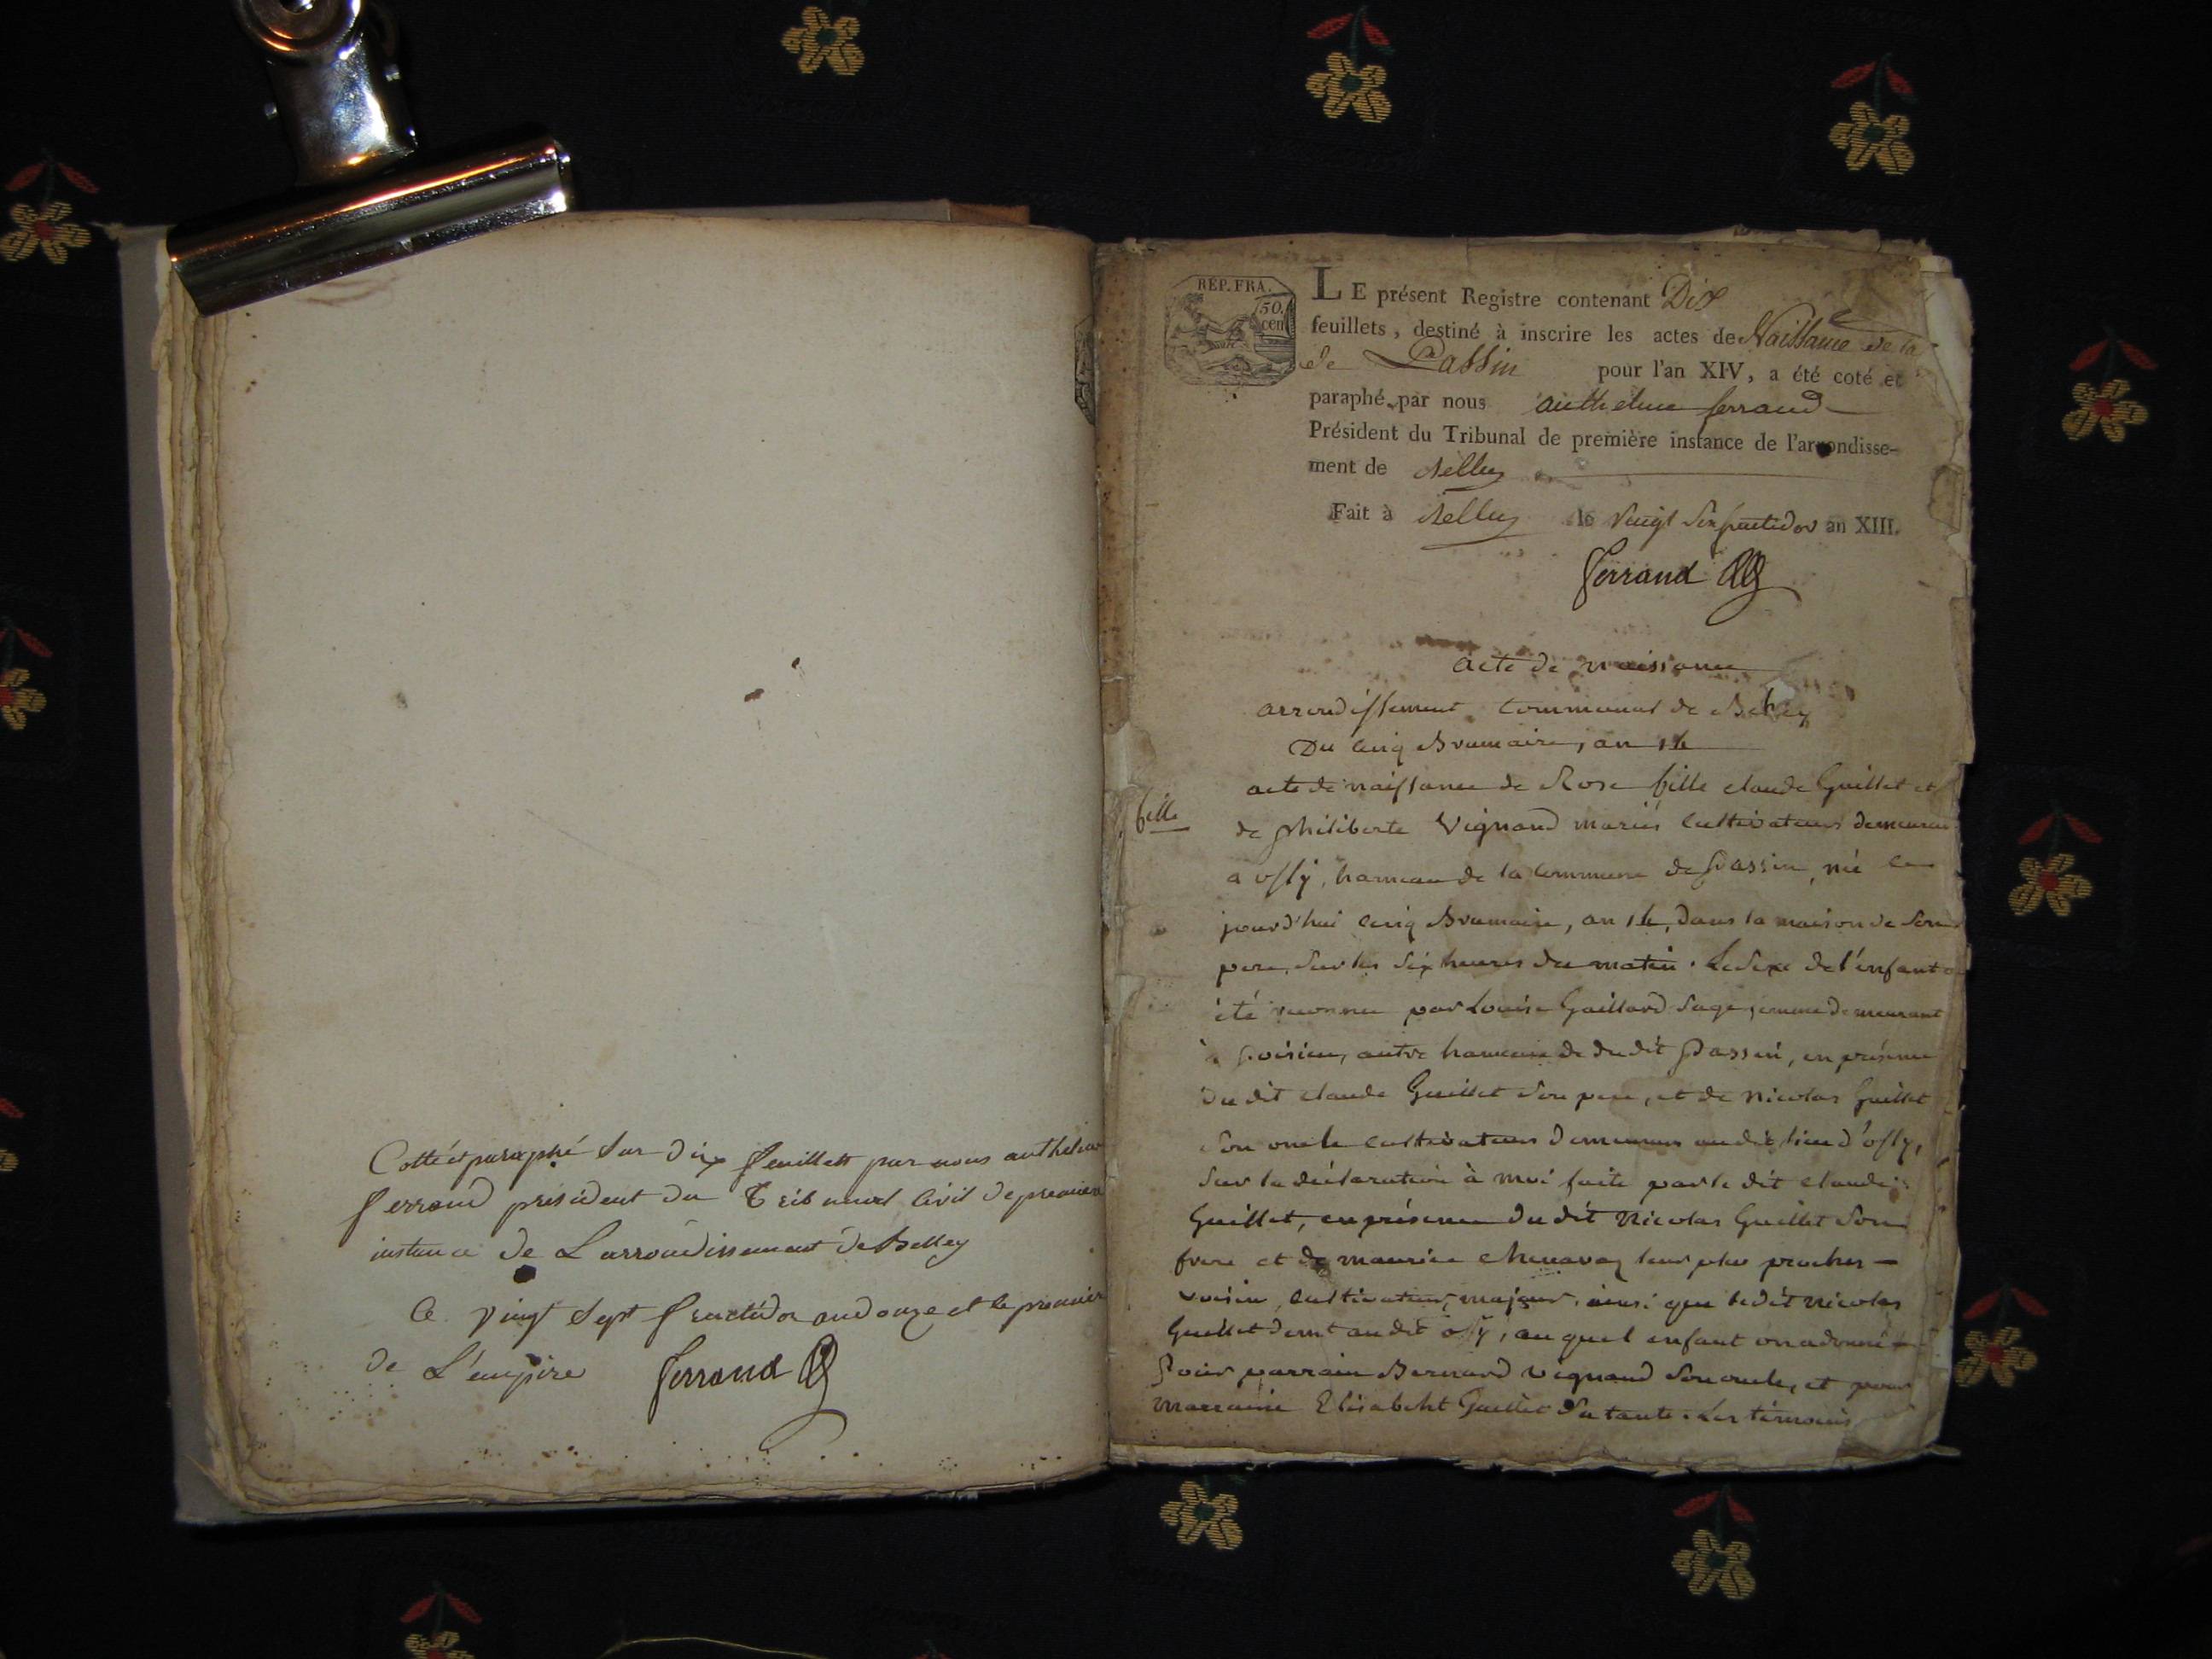 Cotté et paraphé sur dix feuillets par nous anthelme
ferrand président du Tribunal Civil de premiere
instance de L'arrondissement de Belley
Ce vingt sept fructidor an douze et le premier
de L'empire ferrand
REP. FRA.
50.
cen
LE présent Registre contenant Dix
feuillets, destiné à inscrire les actes de Naissance de la
de Passin pour l'an XIV, a été coté et
paraphé par nous anthelme ferrand
Président du Tribunal de première instance de l'arrondisse-
ment de Belley
Fait à Belley le vingt six fructidor an XIII.
ferrand
acte de naissance
arrondissement communal de Belley
Du cinq Brumaire, an 14
acte de naissance de Rose fille claude Guillet et
fille
de philiberte Vignand mariés cultivateurs demeurant
a ossy, hameau de la commune de Passin, né ce
jourd'hui cinq Brumaire, an 14, dans la maison de son
pere, sur les six heures du matin. Le sexe de l'enfant a
été reconnu par Louise Gaillard sage femme demeurant
à poisieu, autre hameau de du dit Passin, en présence
du dit claude Guillet son pere, et de nicolas Guillet
son oncle cultivateurs demeurans au dit lieu d'ossy,
sur la déclaration à moi faite par le dit claude
Guillet, en présence du dit Nicolas Guillet son
frere et de maurice chenavaz leur plus proches
voisin, cultivateur, majeur, ainsi que le dit nicolas
Guillet demt au dit ossy, au quel enfant on a donné
pour parrain Bernard vignand son oncle, et pour
marraine Elisabeht Guillet sa tante. Les témoins